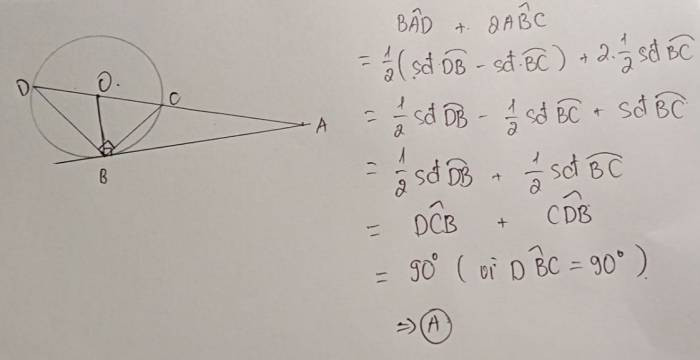 BÂD + 2AB̂C
= 1/2 (sđ D͡B - sđ B͡C) + 2. 1/2 sđ B͡C
= 1/2 sđ D͡B - 1/2 sđ B͡C + sđ B͡C
= 1/2 sđ D͡B + 1/2 sđ B͡C
= DĈB + CD̂B
= 90° (vì DB̂C = 90°)
=> A
D O. C A
B